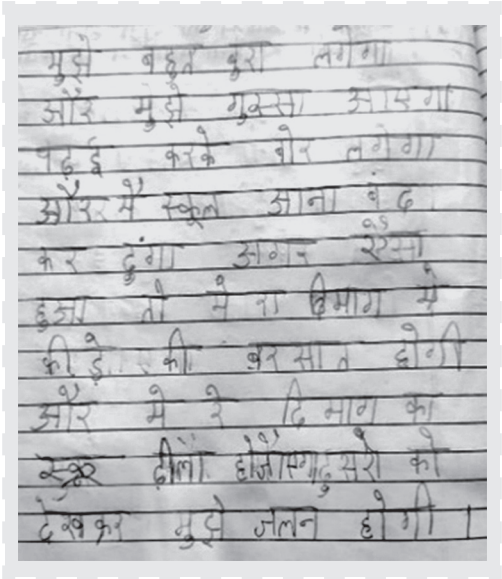 मुझे बहुत बुरा लगेगा
और मुझे गुस्सा आएगा
पढ़ई करके बोर लगेगा
और मैं स्कूल आना बंद
कर दुंगा अगर ऐसा
हुआ तो मेरा दिमाग मे
कीड़े की बरसात होगी
और मेरे दिमाग का
ढीला होजाएगा दुसरो को
देखकर मुझे जलन होगी।